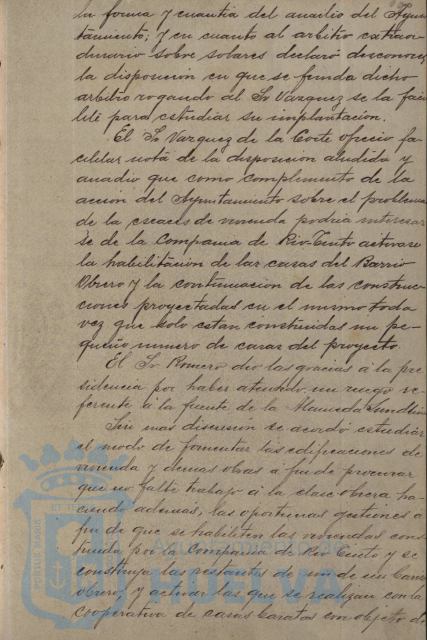 la forma y cuantía del auxilio del Ayun
tamiento; y en cuanto al arbitro extraor
dinario sobre solares declaró desconocer
la disposicion en que se funda dicho
arbitro rogando al Sr Vazquez se la faci
lite para estudiar su implantación.
El Sr Vazquez de la Corte ofreció fa-
cilitar nota de la disposicion aludida y
anadio que como complemento de la
accion del Ayuntamiento sobre el problema
de la escaces de vivienda podria interesar
se de la Compania de Rio-Tinto activase
la habilitación de las casas del Barrio
Obrero y la continuacion de las construc-
ciones proyectadas en el mismo toda
vez que solo estan construidas un pe-
queño numero de casas del proyecto.
El Sr Romero dio las gracias á la pre
sidencia por haber atendido un ruego re
ferente á la fuente de la Alameda Sundheim
Sin mas discusion se acordó estudiar
el modo de fomentar las edificaciones de
vivienda y demas obras a fin de procurar
que no falte trabajo á la clase obrera ha-
ciendo ademas, las oportunas gestiones á
fin de que se habiliten las viviendas cons
truida por la Compania de Rio Tinto y se
construya las restantes de
obrero; y activar las que se realizan con la
cooperativa de casas baratas con objeto de
Ayuntamiento de
HUELVA
PORTUS MARIS